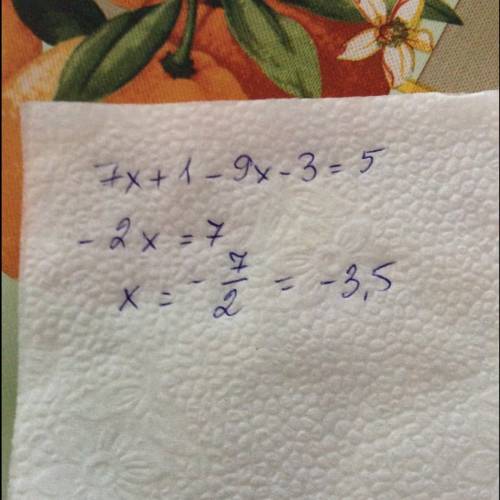 7x + 1 - 9x - 3 = 5
- 2x = 7
x = - 7/2 = - 3,5